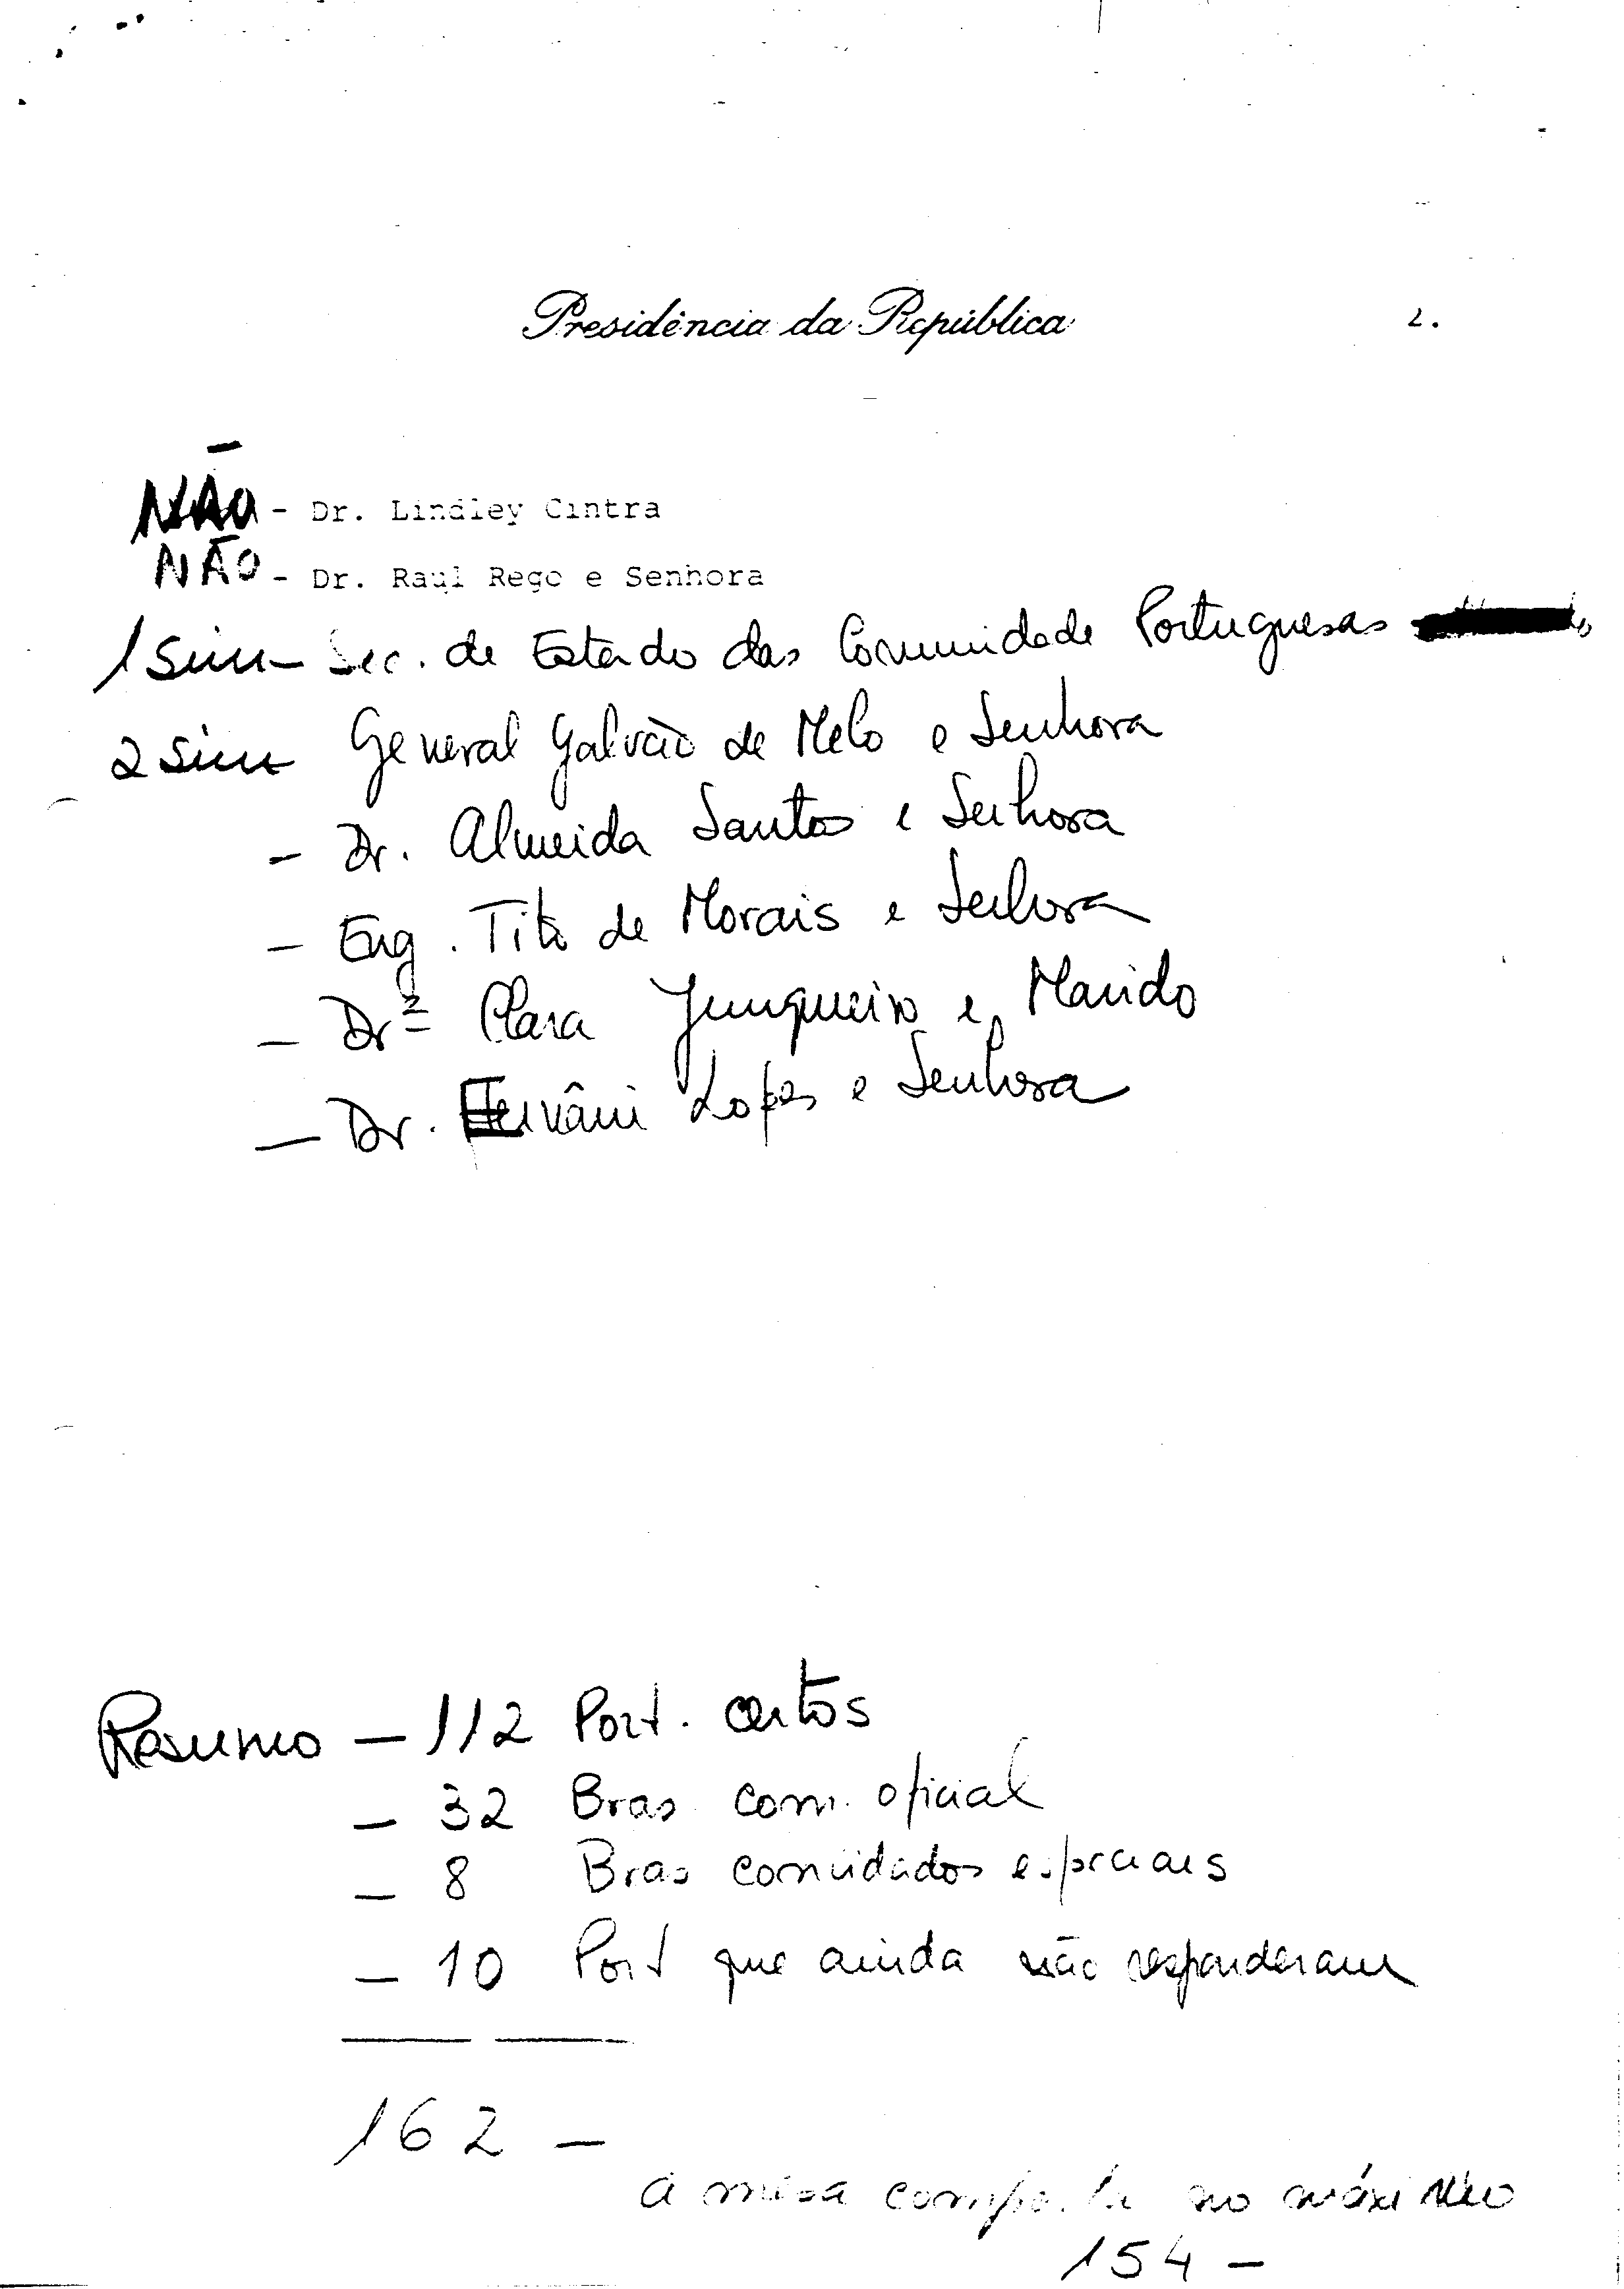 Presidência da República 2.
NÃO - Dr. Lindley Cintra
NÃO - Dr. Raul Rego e Senhora
1 sim - Sec. de Estado das Comunidade Portuguesas
2 sim General Galvão de Melo e Senhora
- Dr. Almeida Santos e Senhora
- Eng. Tito de Morais e Senhora
- Drª Clara Junqueiro e Marido
- Dr. Ernâni Lopes e Senhora
Resumo - 112 Port. certos
- 32 Bras com. oficial
- 8 Bras convidados especiais
- 10 Port que ainda não responderam
162 -
a mesa comporta no máximo
154 -